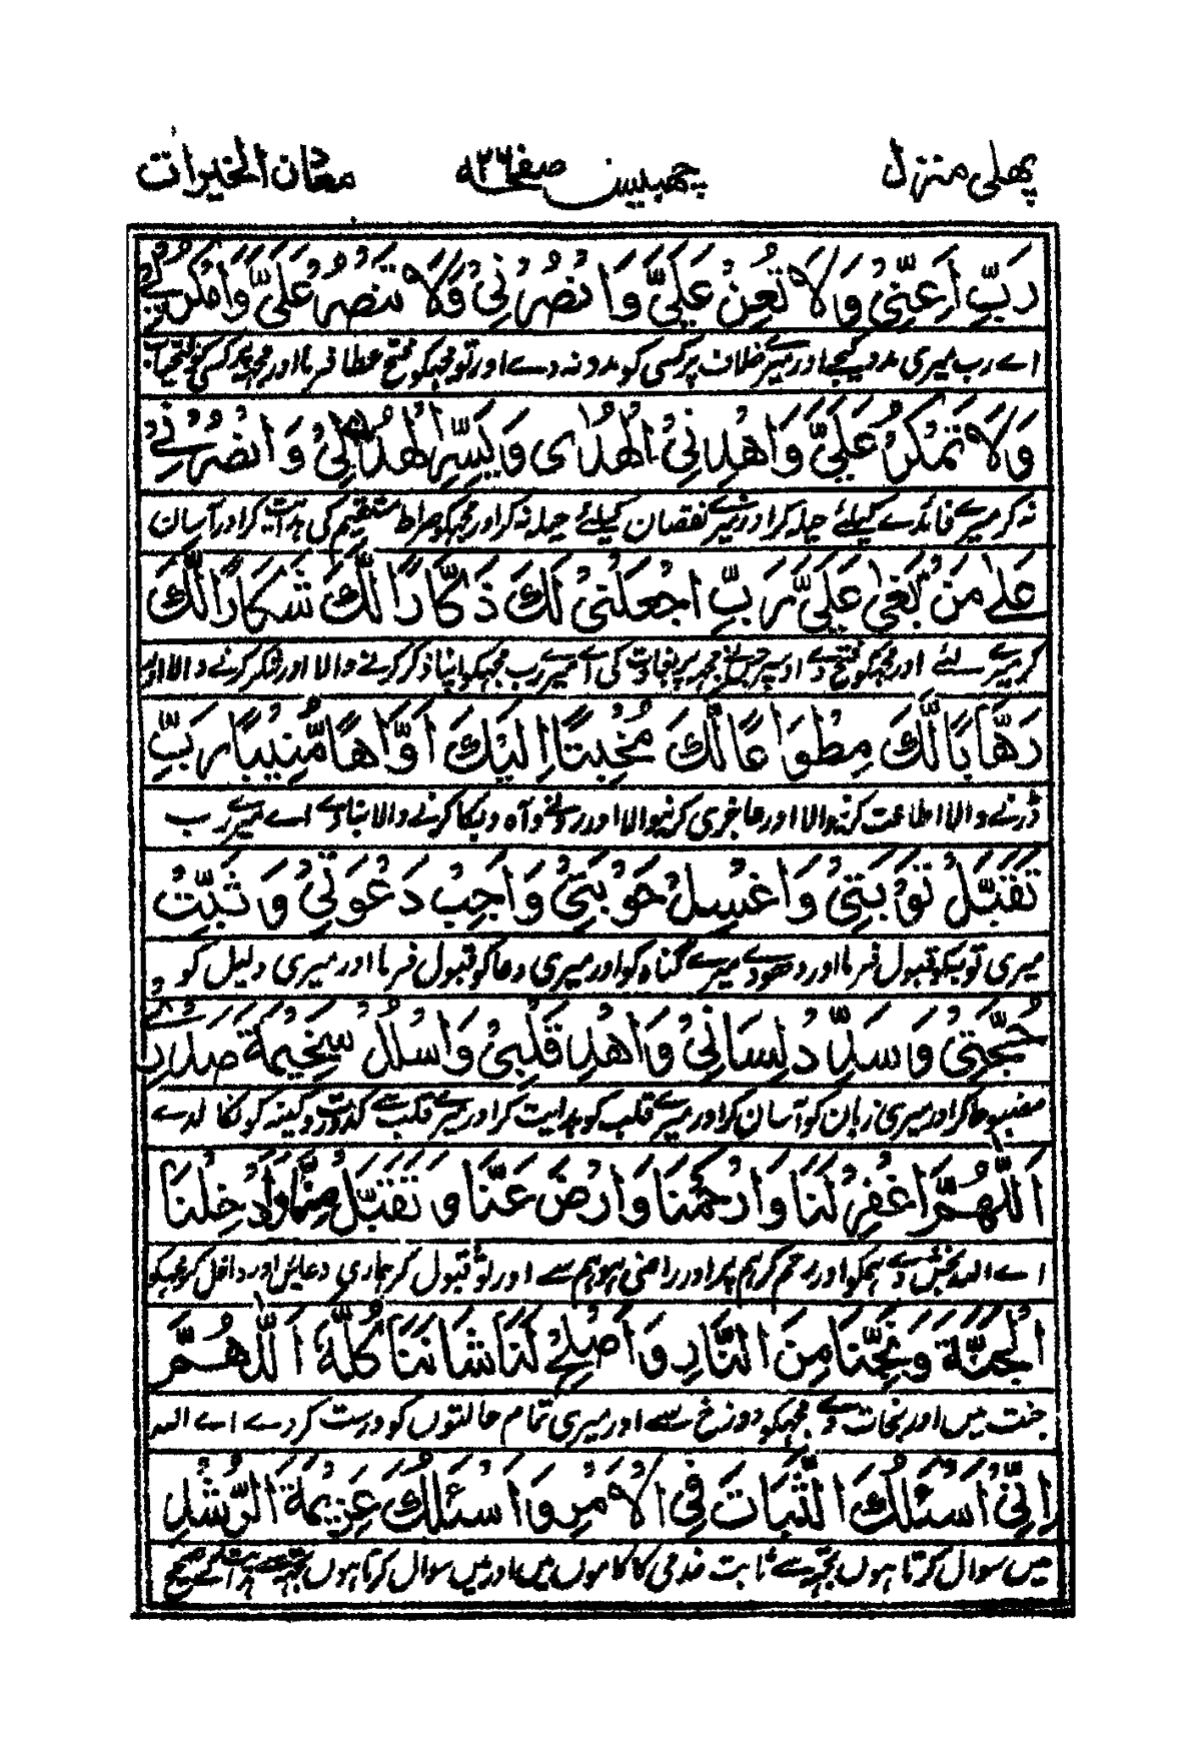 پہلی منزل چھبیس صفحہ ٢٦ معدن الخیرات
رَبِّ اَعِنِّیْ وَلَا تُعِنْ عَلَیَّ وَانْصُرْنِیْ وَلَا تَنْصُرْ عَلَیَّ وَامْكُرْ لِیْ
اے رب میری مدد کیجے اور میرے خلاف پر کسی کو مدد نہ دے اور تو مجہکو فتح عطا فرما اور مجہپر کسی کو فتحیاب
وَلَا تَمْكُرْ عَلَیَّ وَاهْدِنِیْ الْهُدٰی وَیَسِّرِ الْهُدٰی لِیْ وَانْصُرْنِیْ
نہ کر میرے فائدے کیلئے حیلہ کر اور میرے نقصان کیلئے حیلہ نہ کر اور مجہکو صراط مستقیم کی ہدایت کر اور آسان
عَلٰے مَنْ بَغٰی عَلَیَّ رَبِّ اجْعَلْنِیْ لَكَ ذَكَّارًا لَّكَ شَكَّارًا لَّكَ
کر میرے لئے اور مجہکو فتح دے اوسپر جسنے مجہپر بغاوت کی اے میرے رب مجہکو اپنا ذکر کرنے والا اور شکر کرنے والا اور
رَهَّابًا لَّكَ مِطْوَاعًا لَّكَ مُخْبِتًا اِلَیْكَ اَوَّاهًا مُّنِیْبًا رَبِّ
ڈرنے والا اطاعت کرنیوالا اور عاجزی کرنیوالا اور رونے و آہ و بکا کرنے والا بنادے اے میرے رب
تَقَبَّلْ تَوْبَتِیْ وَاغْسِلْ حَوْبَتِیْ وَاَجِبْ دَعْوَتِیْ وَثَبِّتْ
میری توبہکو قبول فرما اور دھودے میرے گناہ کو اور میری دعا کو قبول فرما اور میری دلیل کو
حُجَّتِیْ وَسَدِّدْ لِسَانِیْ وَاهْدِ قَلْبِیْ وَاسْلُلْ سَخِیْمَةَ صَدْرِیْ
مضبوط کر اور میری زبان کو آسان کر اور میرے قلب کو ہدایت کر اور میرے قلب سے کدورت و کینہ کو نکالدے
اَللّٰهُمَّ اغْفِرْ لَنَا وَارْحَمْنَا وَارْضَ عَنَّا وَتَقَبَّلْ مِنَّا وَاَدْخِلْنَا
اے اللہ بخش دے ہمکو اور رحم کر ہم پر اور راضی ہو ہم سے اور تو قبول کر ہماری دعائیں اور داخل کر مجہکو
الْجَنَّةَ وَنَجِّنَا مِنَ النَّارِ وَاَصْلِحْ لَنَا شَانَنَا كُلَّهٗ اَللّٰهُمَّ
جنت میں اور نجات دے مجہکو دوزخ سے اور میری تمام حالتوں کو درست کردے اے اللہ
اِنِّیْ اَسْئَلُكَ الثَّبَاتَ فِی الْاَمْرِ وَاَسْئَلُكَ عَزِیْمَةَ الرُّشْدِ
میں سوال کرتا ہوں تجہہ سے ثابت قدمی کا کاموں میں اور میں سوال کرتا ہوں تجہہ سے ہدایت کے صحیح